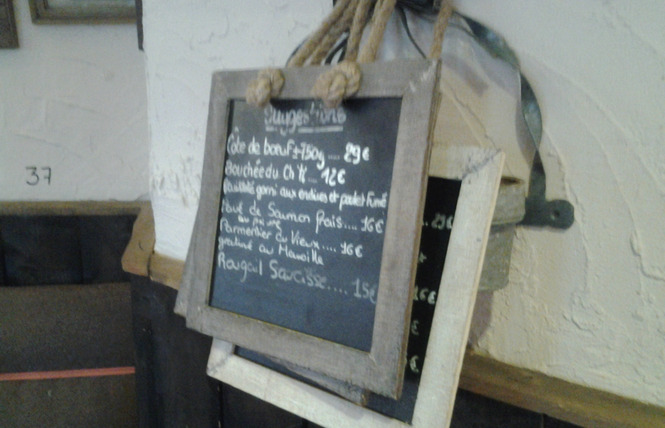 37
Suggestions
Côte de bœuf ±750g.... 29€
Bouchée du Ch'ti... 12€
garni aux endives et poulet fumé
Pavé de Saumon frais.... 16€
Parmentier du Vieux.... 16€
gratiné au Maroille
Rougail Saucisse.... 15€
16€
€
€